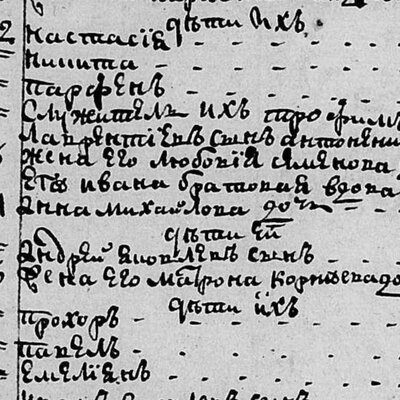 дѣти ихъ
настасїѧ
никита
парфенъ
служитель ихъ трофимъ
лаврентїевъ сынъ антонени
жена его любовїя семенова
его ивана братовая вдова
анна михайлова дочь
дѣти ей
андрей яковлевъ сынъ
жена его матрона корнѣева до
дѣти ихъ
прохоръ
павелъ
емелїянъ